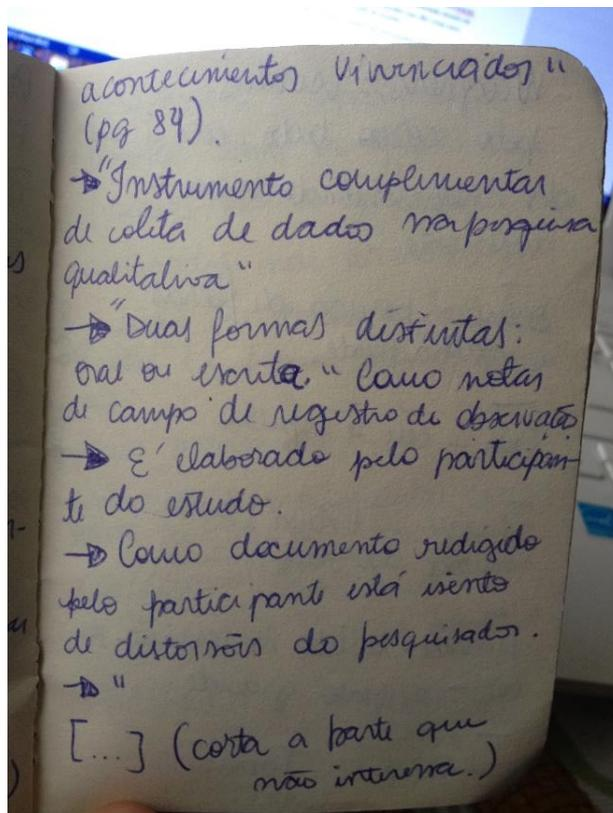 acontecimentos vivenciados"
(pg 84).
→ "Instrumento complementar
de coleta de dados na pesquisa
qualitativa"
→ "Duas formas distintas:
oral ou escrita." Como notas
de campo de registro de observação
→ É elaborado pelo participan-
te do estudo.
→ Como documento redigido
pelo participante está isento
de distorsões do pesquisador.
→ "
[...] (corta a parte que
não interessa.)